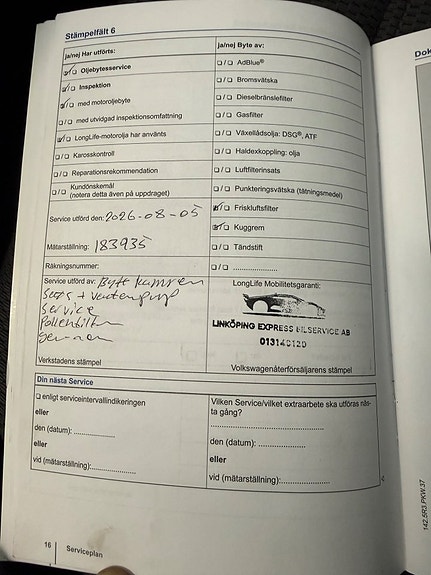 Stämpelfält 6
ja/nej Har utförts:
☑/☐ Oljebytesservice
☑/☐ Inspektion
☑/☐ med motoroljebyte
☐/☐ med utvidgad inspektionsomfattning
☑/☐ LongLife-motorolja har använts
☐/☐ Karosskontroll
☐/☐ Reparationsrekommendation
☐/☐ Kundönskemål
(notera detta även på uppdraget)
Service utförd den: 2026-08-05
Mätarställning: 183935
Räkningsnummer:
Service utförd av: Bytt kamrem
Sats + vattenpump
Service
Pollenfilter
Verkstadens stämpel
ja/nej Byte av:
☐/☐ AdBlue®
☐/☐ Bromsvätska
☐/☐ Dieselbränslefilter
☐/☐ Gasfilter
☐/☐ Växellådsolja: DSG®, ATF
☐/☐ Haldexkoppling: olja
☐/☐ Luftfilterinsats
☐/☐ Punkteringsvätska (tätningsmedel)
☑/☐ Friskluftsfilter
☑/☐ Kuggrem
☐/☐ Tändstift
☐/☐ ........................
LongLife Mobilitetsgaranti:
LINKÖPING EXPRESS BILSERVICE AB
Volkswagenåterförsäljarens stämpel
Din nästa Service
☐ enligt serviceintervallindikeringen
eller
den (datum): ......................
eller
vid (mätarställning):......................
Vilken Service/vilket extraarbete ska utföras näs-
ta gång?
..........................................................
den (datum): ......................
eller
vid (mätarställning):......................
16 Serviceplan
Dok
142.5R3.PKW.37